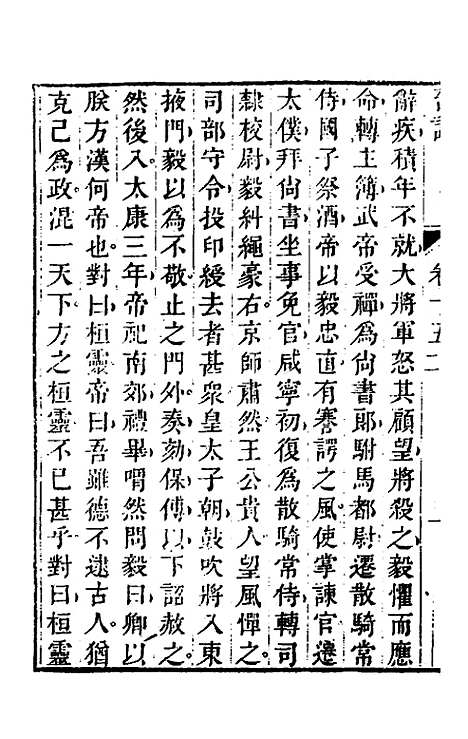 辭疾積年不就大將軍怒其顧望將殺之毅懼而應
命轉主簿武帝受禪爲尙書郞駙馬都尉遷散騎常
侍國子祭酒帝以毅忠直有謇諤之風使掌諫官遷
太僕拜尙書坐事免官咸寧初復爲散騎常侍轉司
隸校尉毅糾繩豪右京師肅然王公貴人望風憚之
司部守令投印綬去者甚衆皇太子朝鼓吹將入東
掖門毅以爲不敬止之門外奏劾保傅以下詔赦之
然後入太康三年帝祀南郊禮畢喟然問毅曰卿以
朕方漢何帝也對曰桓靈帝曰吾雖德不逮古人猶
克己爲政混一天下方之桓靈不已甚乎對曰桓靈